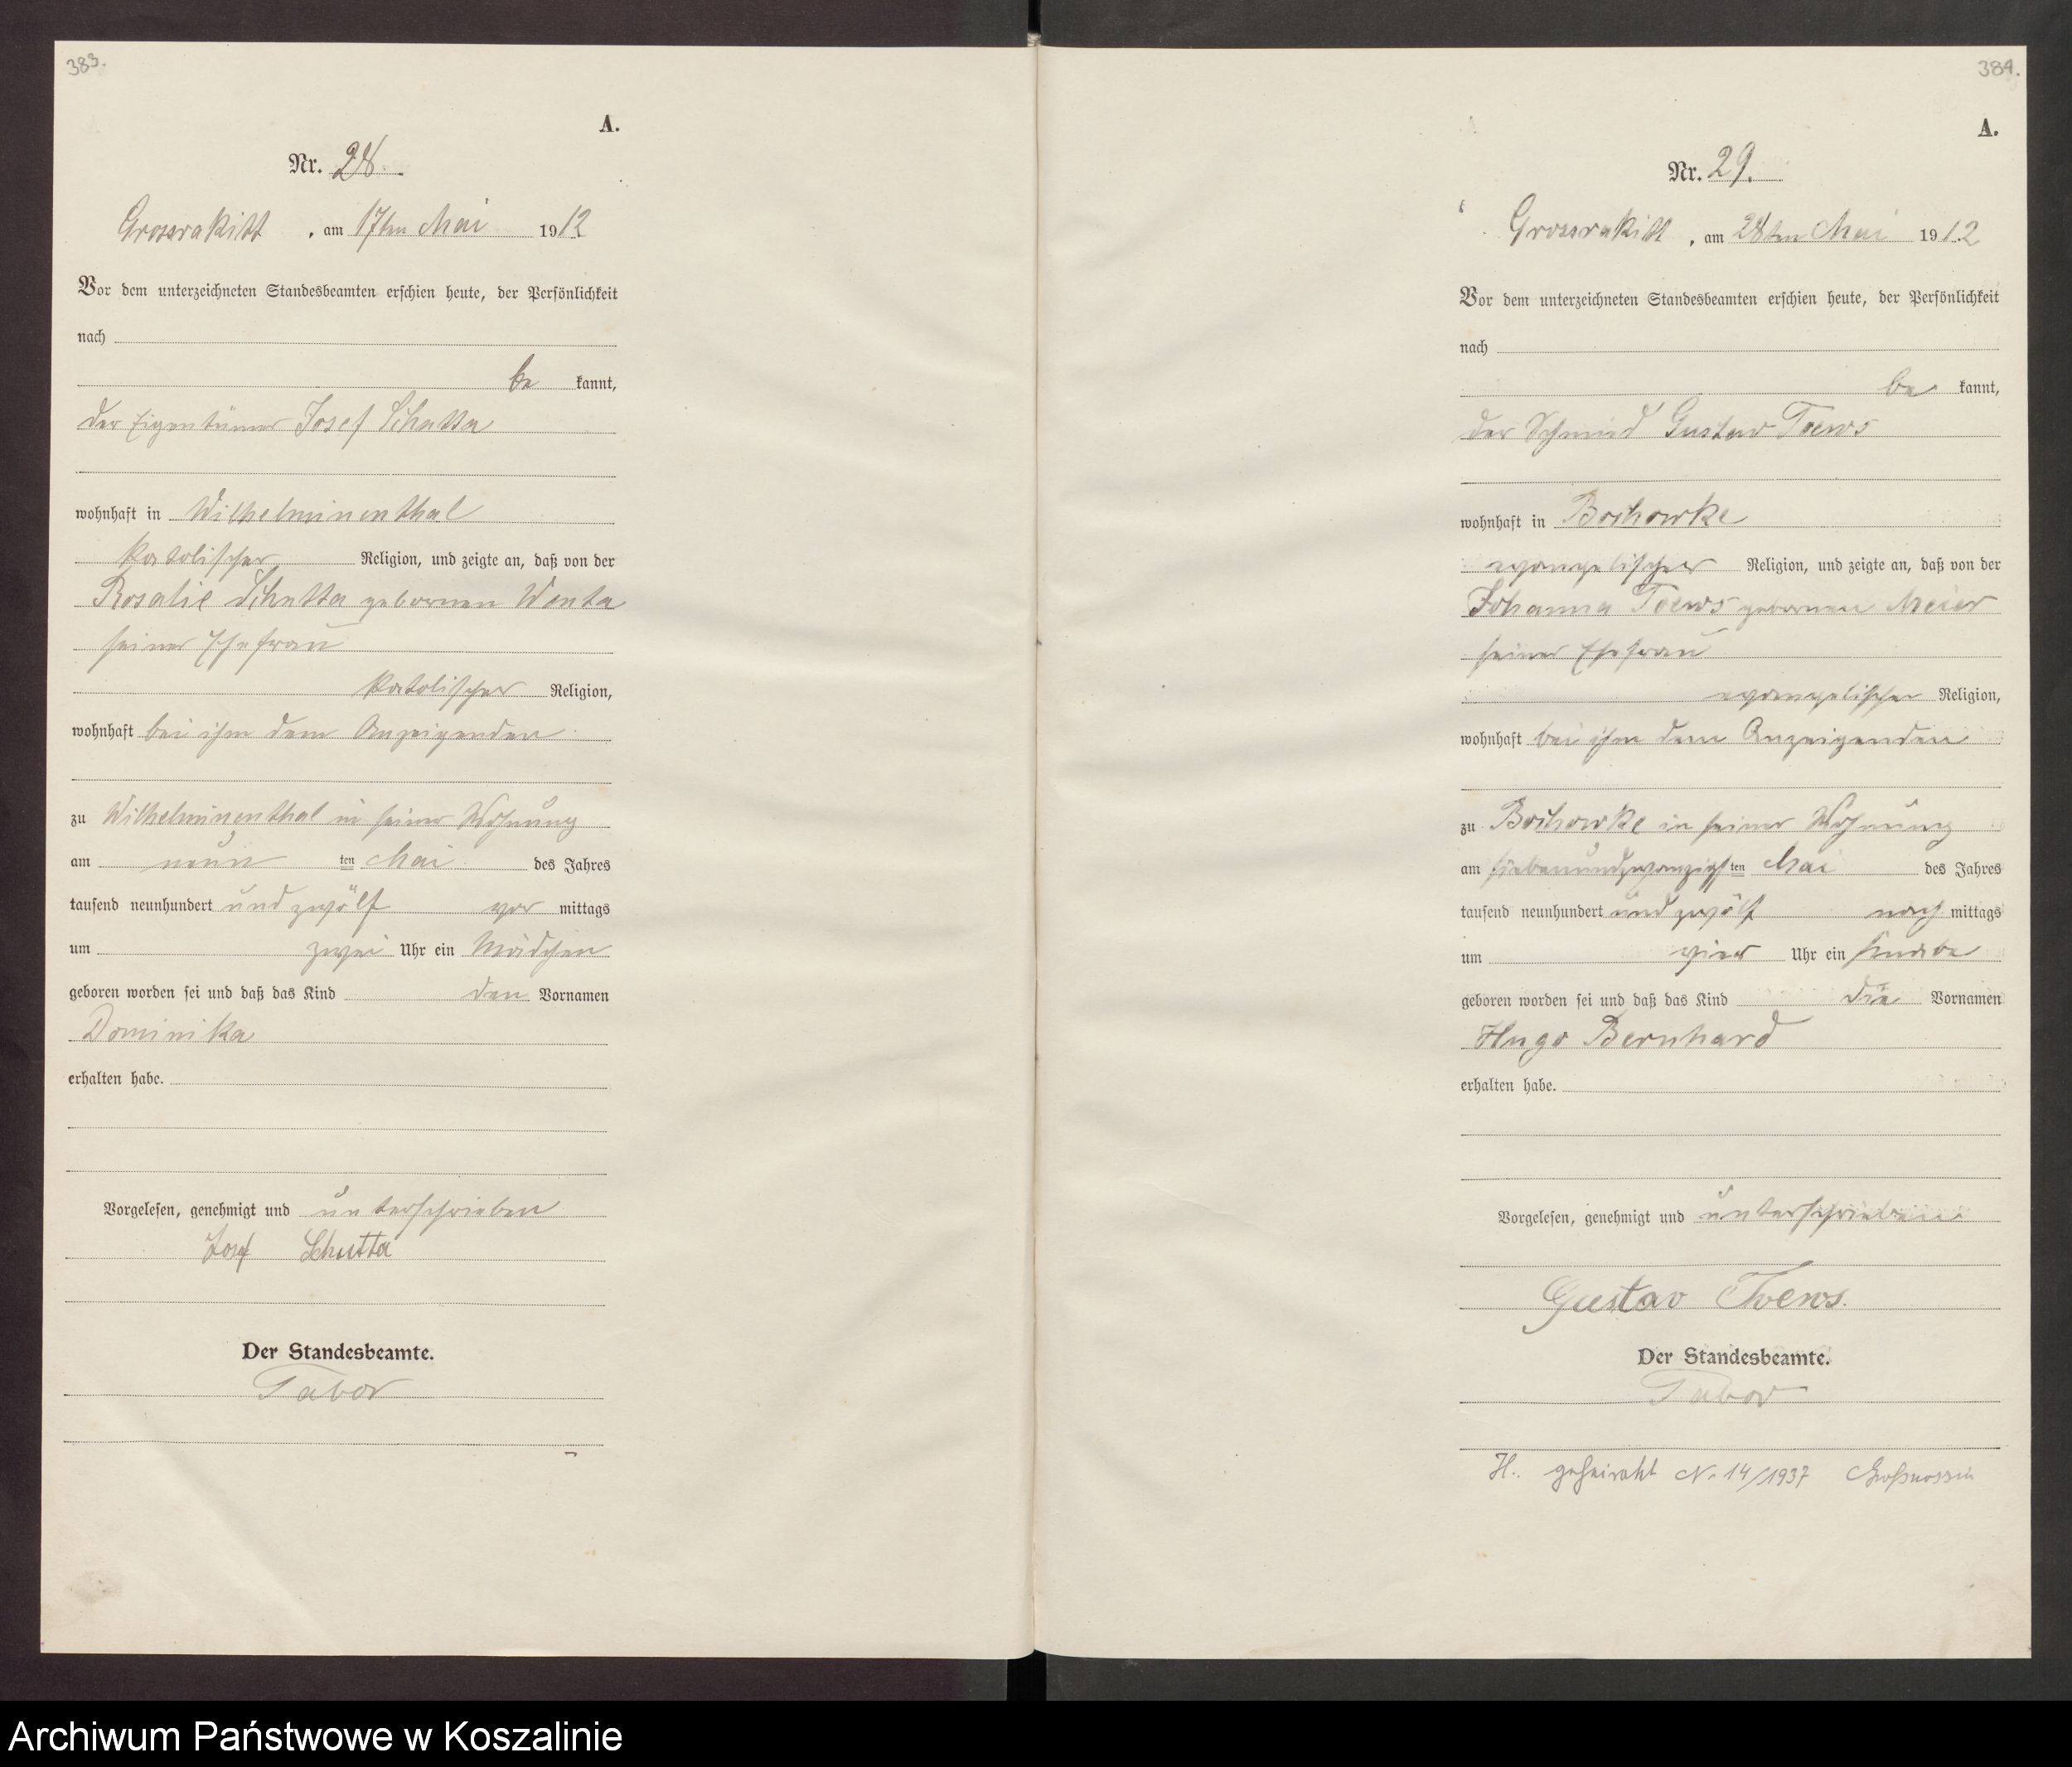 383.
A.
Nr. 28
Grossrakitt, am 17ten Mai 1912
Vor dem unterzeichneten Standesbeamten erschien heute, der Persönlichkeit
nach
be kannt,
der Eigentümer Josef Schutta
wohnhaft in Wilhelminenthal
katolischer Religion, und zeigte an, daß von der
Rosalie Schutta gebornen Wenta
seiner Ehefrau
katolischer Religion,
wohnhaft bei ihm dem Anzeigenden
zu Wilhelminenthal in seiner Wohnung
am neun ten Mai des Jahres
tausend neunhundert und zwölf vor mittags
um zwei Uhr ein Mädchen
geboren worden sei und daß das Kind den Vornamen
Dominika
erhalten habe.
Vorgelesen, genehmigt und unterschrieben
Josef Schutta
Der Standesbeamte.
Tabor
384.
A.
Nr. 29.
Grossrakitt, am 28ten Mai 1912
Vor dem unterzeichneten Standesbeamten erschien heute, der Persönlichkeit
nach
be kannt,
der Schmied Gustav Toews
wohnhaft in Bochowke
evangelischer Religion, und zeigte an, daß von der
Johanna Toews gebornen Meier
seiner Ehefrau
evangelischer Religion,
wohnhaft bei ihm dem Anzeigenden
zu Bochowke in seiner Wohnung
am siebenundzwanzigsten Mai des Jahres
tausend neunhundert und zwölf nach mittags
um vier Uhr ein Knabe
geboren worden sei und daß das Kind die Vornamen
Hugo Bernhard
erhalten habe.
Vorgelesen, genehmigt und unterschrieben
Gustav Toews.
Der Standesbeamte.
Tabor
H. geheiratet Nr 14/1937 Großnossin
Archiwum Państwowe w Koszalinie